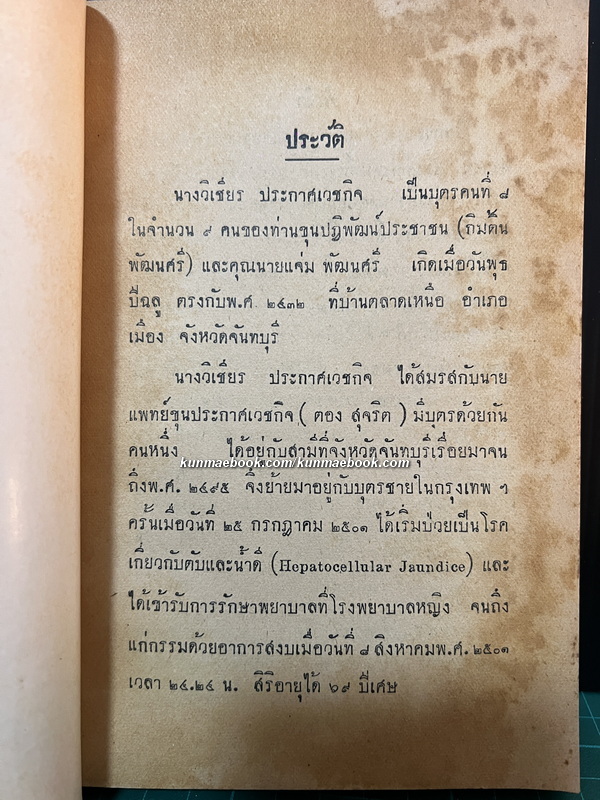 ประวัติ
นางวิเชียร ประกาศเวชกิจ เป็นบุตรคนที่ ๘
ในจำนวน ๙ คนของท่านขุนปฏิพัฒน์ประชาชน (กิมตัน
พัฒนศรี) และคุณนายแจ่ม พัฒนศรี เกิดเมื่อวันพุธ
ปีฉลู ตรงกับพ.ศ ๒๔๓๒ ที่บ้านตลาดเหนือ อำเภอ
เมือง จังหวัดจันทบุรี
นางวิเชียร ประกาศเวชกิจ ได้สมรสกับนาย
แพทย์ขุนประกาศเวชกิจ ( ตอง สุจริต ) มีบุตรด้วยกัน
คนหนึ่ง ได้อยู่กับสามีที่จังหวัดจันทบุรีเรื่อยมาจน
kunmaebook.com/kunmaebook.com
ถึงพ.ศ. ๒๔๙๕ จึงย้ายมาอยู่กับบุตรชายในกรุงเทพ ฯ
ครั้นเมื่อวันที่ ๒๕ กรกฎาคม ๒๕๐๑ ได้เริ่มป่วยเป็นโรค
เกี่ยวกับตับและน้ำดี (Hepatocellular Jaundice) และ
ได้เข้ารับการรักษาพยาบาลที่โรงพยาบาลหญิง จนถึง
แก่กรรมด้วยอาการสงบเมื่อวันที่ ๘ สิงหาคมพ.ศ. ๒๕๐๑
เวลา ๒๔.๒๔ น. สิริอายุได้ ๖๙ ปีเศษ